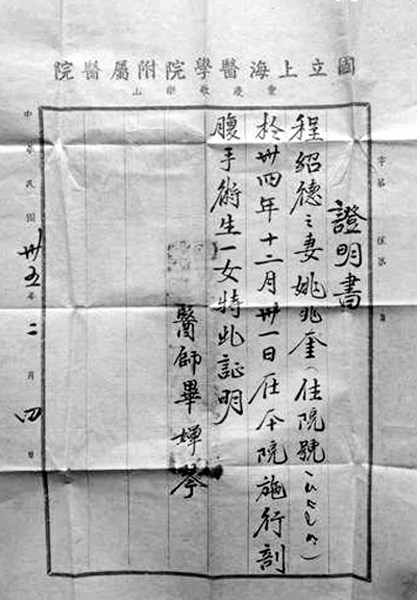 國立上海醫學院附屬醫院
重慶歌樂山
字第 號
證明書
程紹德之妻姚兆奎(住院號)
於卅四年十二月卅一日在本院施行剖
腹手術生一女特此証明
醫師畢嬋琴
中華民國卅五年二月四日